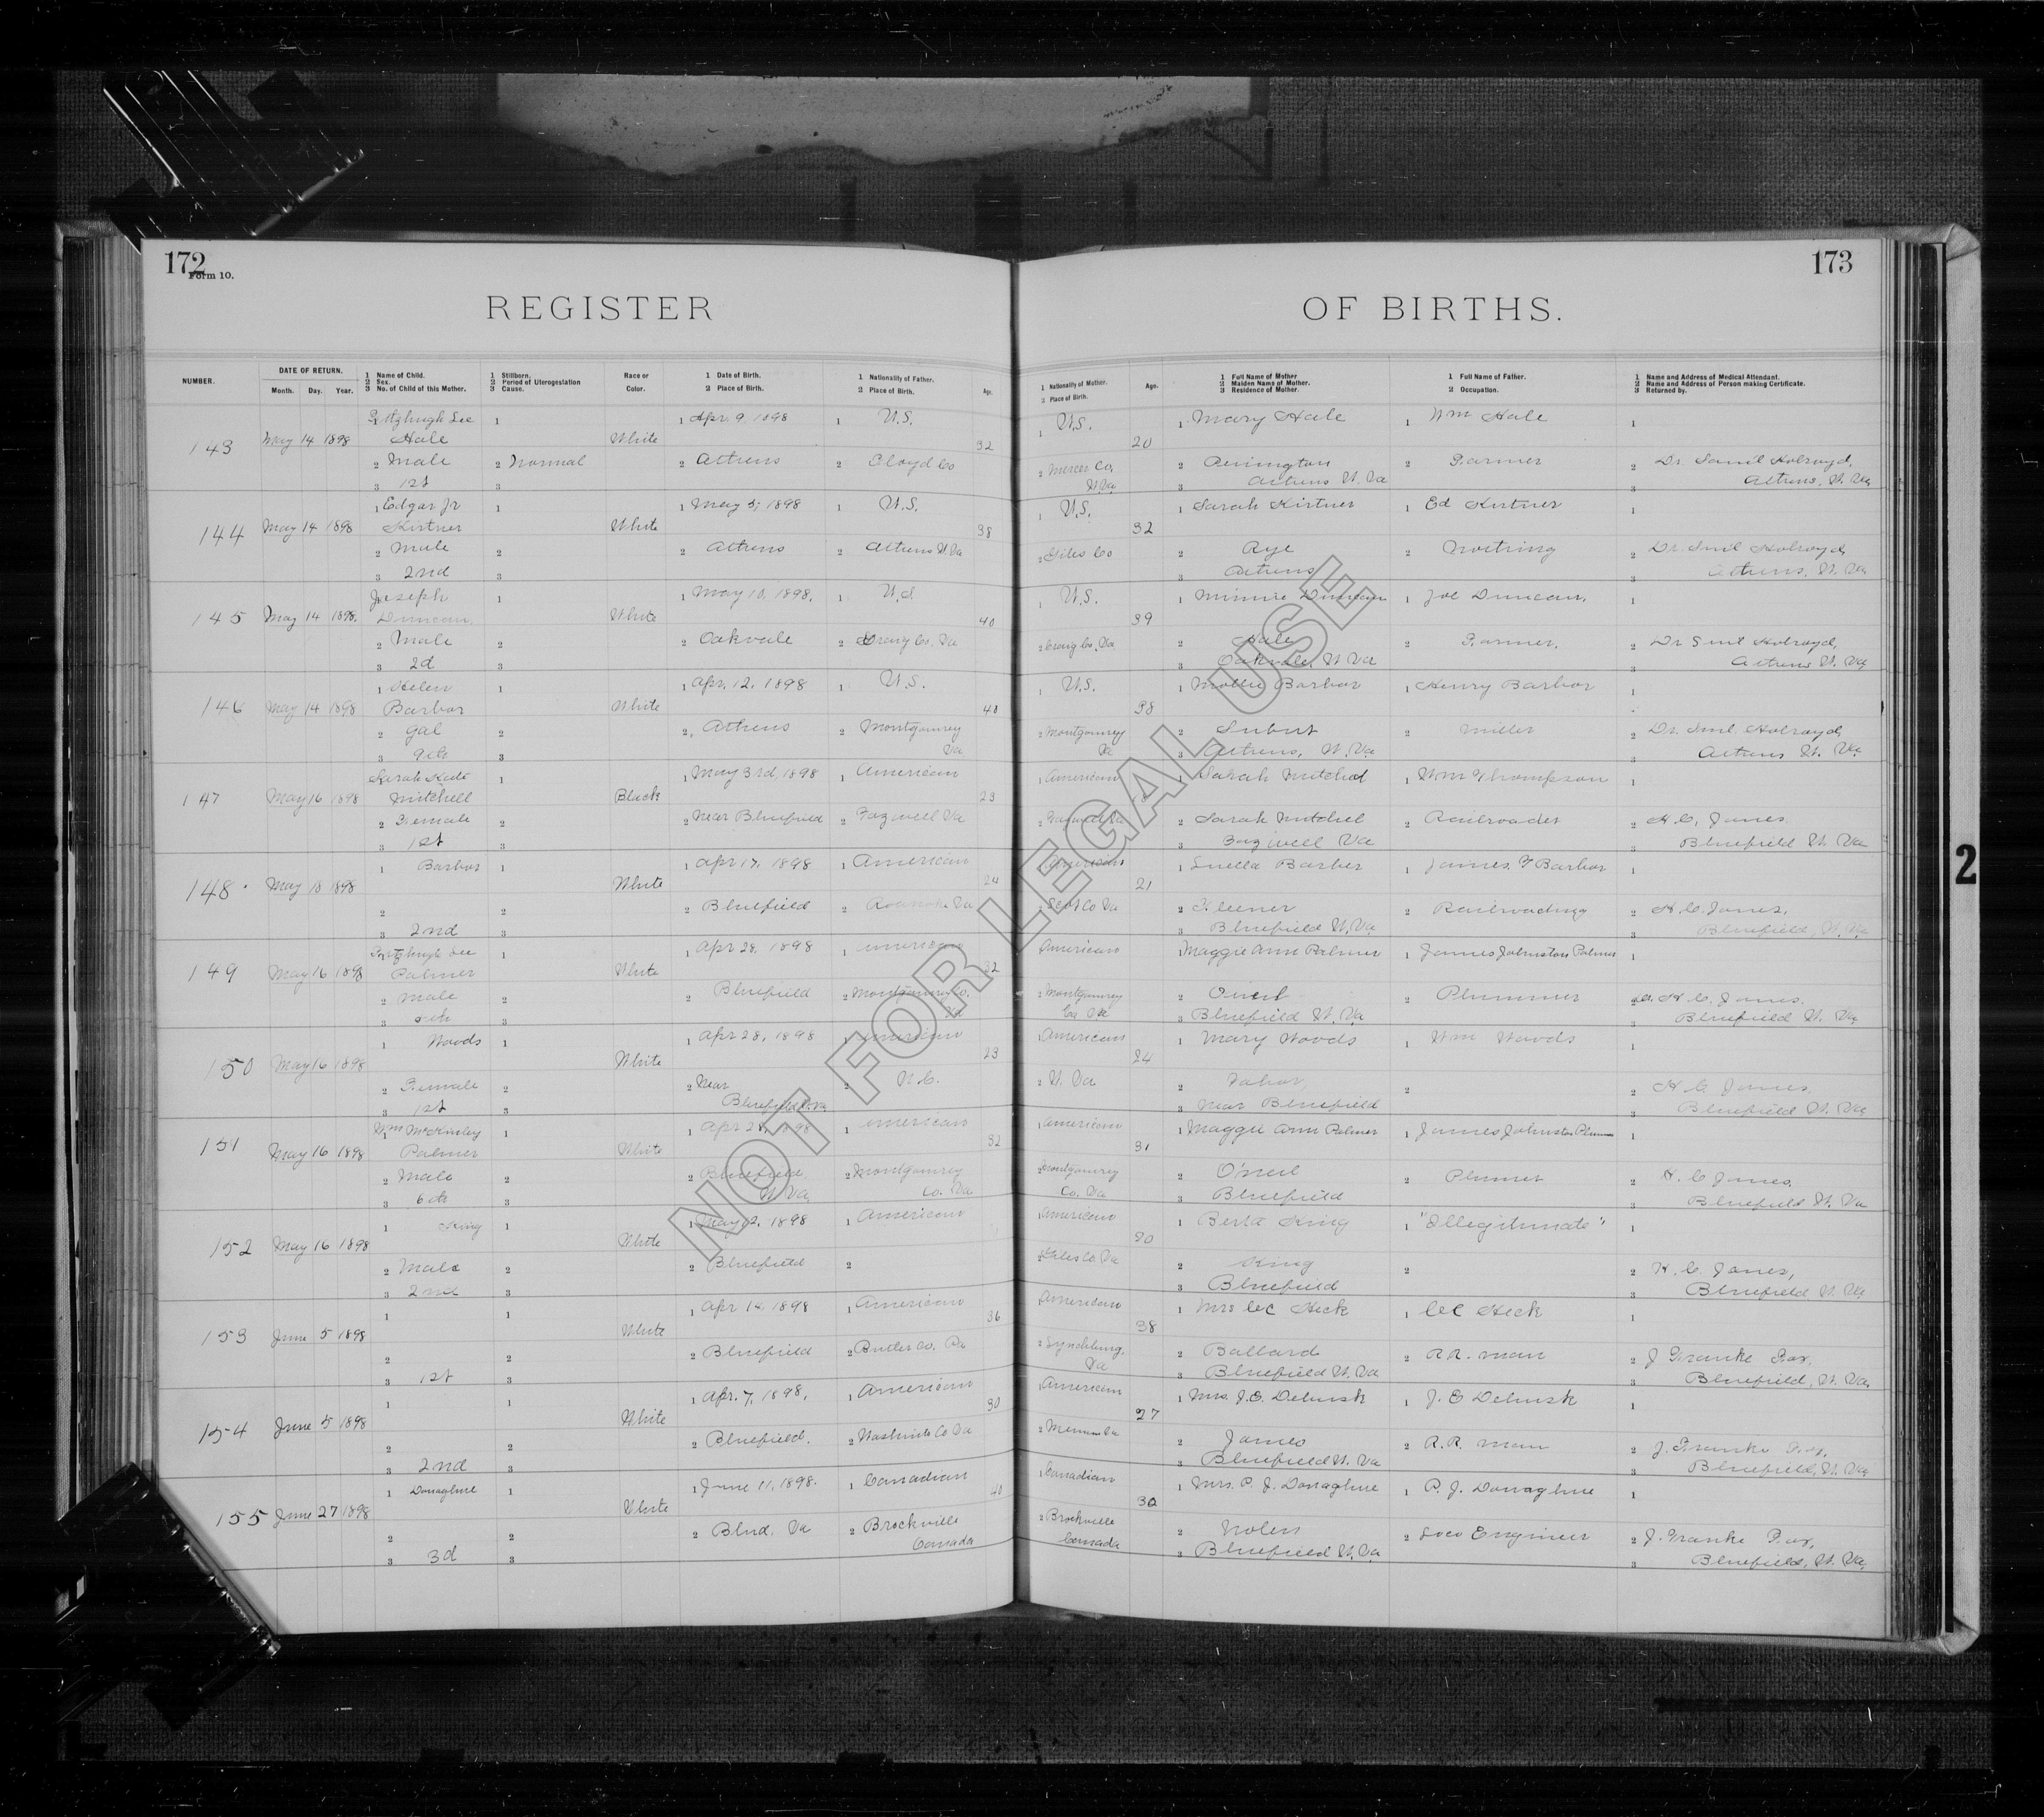 172
Form 10.
173
REGISTER OF BIRTHS.
NUMBER.
DATE OF RETURN.
Month. Day. Year.
1 Name of Child.
2 Sex.
3 No. of Child of this Mother.
1 Stillborn.
2 Period of Uterogestation
3 Cause.
Race or
Color.
1 Date of Birth.
2 Place of Birth.
1 Nationality of Father.
2 Place of Birth.
Age.
1 Nationality of Mother.
2 Place of Birth.
Age.
1 Full Name of Mother
2 Maiden Name of Mother.
3 Residence of Mother.
1 Full Name of Father.
2 Occupation.
1 Name and Address of Medical Attendant.
2 Name and Address of Person making Certificate.
3 Returned by.
Fitzhugh Lee 1 1 Apr. 9, 1898 1 U.S. 1 U.S. 1 Mary Hale 1 Wm Hale 1
143 May 14 1898 Hale White 32 20
2 Male 2 Normal 2 Athens 2 Cloyd Co 2 Mercer Co. 2 2 Farmer 2 Dr. Saml Holroyd,
3 1st 3 W Va 3 Athens W. Va 3 Athens, W. Va
1 Edgar Jr 1 1 May 5, 1898 1 U.S. 1 U.S. 1 Sarah Kirtner 1 Ed Kirtner 1
144 May 14 1898 Kirtner White 38 32
2 Male 2 2 Athens 2 Athens W Va 2 Giles Co 2 Rye 2 2 Dr. Saml Holroyd,
3 2nd 3 3 Athens 3 Athens, W. Va
Joseph 1 1 May 10, 1898. 1 U.S. 1 U.S. 1 Minnie Duncan 1 Joe Duncan. 1
145 May 14 1898. Duncan White 40 39
2 Male 2 2 Oakvale 2 Craig Co. Va 2 Craig Co. Va 2 Hale 2 Farmer. 2 Dr Saml Holroyd,
3 2d 3 3 Oakvale, W Va 3 Athens W. Va
1 Helen 1 1 Apr. 12, 1898 1 U.S. 1 U.S. 1 Mollie Barbor 1 Henry Barbor 1
146 May 14 1898 Barbor White 40 38
2 Gal 2 2 Athens 2 Montgomrey 2 Montgomrey 2 2 Miller 2 Dr. Saml. Holroyd,
3 9th 3 Va Va 3 Athens, W. Va. 3 Athens W. Va.
Sarah Kate 1 1 May 3rd, 1898 1 American 1 American 1 Sarah Mitchel 1 Wm Thompson 1
147 May 16 1898 Mitchell Black 23
2 Female 2 2 Near Bluefield 2 Tazwell Va 2 2 Sarah Mitchel 2 Railroader 2 H. C. Jones.
3 1st 3 3 Tazwell Va 3 Bluefield W. Va
1 Barbor 1 1 Apr 17, 1898 1 American 1 American 1 Luella Barber 1 James F Barbor 1
148. May 18 1898 White 24 21
2 2 2 Bluefield 2 Roanoke Va 2 Scott Co Va 2 2 Railroading 2 H. C. Jones,
3 2nd 3 3 Bluefield W. Va 3 Bluefield, W. Va
Fitzhugh Lee 1 1 Apr 28, 1898 1 American American 1 Maggie Ann Palmer 1 James Johnston Palmer 1
149 May 16 1898 Palmer White 32
2 Male 2 2 Bluefield 2 Montgomrey Co. 2 Montgomrey 2 Oneil 2 Plummer 2 H. C. Jones.
3 5th 3 Va Co. Va 3 Bluefield W. Va 3 Bluefield W. Va
1 Woods 1 1 Apr 28, 1898 1 American American 1 Mary Woods 1 Wm Woods 1
150 May 16 1898 White 23 24
2 Female 2 2 Near 2 N.C. 2 W. Va 2 Tabor, 2 2 H. C. Jones,
3 1st 3 Bluefield W. Va 3 Near Bluefield 3 Bluefield W. Va
Wm McKinley 1 1 Apr 28, 1898 1 American American 1 Maggie Ann Palmer 1 James Johnston 1
151 May 16 1898 Palmer White 32 31
2 Male 2 2 Bluefield 2 Montgomrey 2 Montgomrey 2 O'neil 2 Plumer 2 H. C. Jones,
3 6th 3 W Va. Co. Va Co. Va 3 Bluefield 3 Bluefield W. Va
1 King 1 1 May 2, 1898 1 American American 1 Berta King 1 "Illegitimate" 1
152 May 16 1898 White 20
2 Male 2 2 Bluefield 2 2 Giles Co. Va 2 King 2 2 H. C. Jones,
3 2nd 3 3 Bluefield 3 Bluefield W. Va
1 1 1 Apr 14, 1898 1 American American 1 Mrs CC Heck 1 CC Heck 1
153 June 5 1898 White 36 38
2 2 2 Bluefield 2 Butler Co. Pa 2 Lynchburg, 2 Ballard 2 R.R. man 2 J Franke Fox,
3 1st 3 Va 3 Bluefield W. Va 3 Bluefield, W. Va,
1 1 1 Apr. 7, 1898, 1 American 1 American 1 Mrs. J. E. Debusk 1 J. E Debusk 1
154 June 5 1898 White 30 27
2 2 2 Bluefield. 2 Co Va 2 2 James 2 R.R. man 2 J. Franke Fox,
3 2nd 3 3 Bluefield W. Va 3 Bluefield, W. Va,
1 Donaghue 1 1 June 11, 1898. 1 Canadian 1 Canadian 1 Mrs. P. J. Donaghue 1 P. J. Donaghue 1
155 June 27 1898 White 40 30
2 2 2 Blud. Va 2 Brockville 2 Brockville 2 Nolen 2 Loco Engineer 2 J. Franke Fox,
3 3d 3 Canada Canada 3 Bluefield W. Va 3 Bluefield, W. Va,
NOT FOR LEGAL USE
2